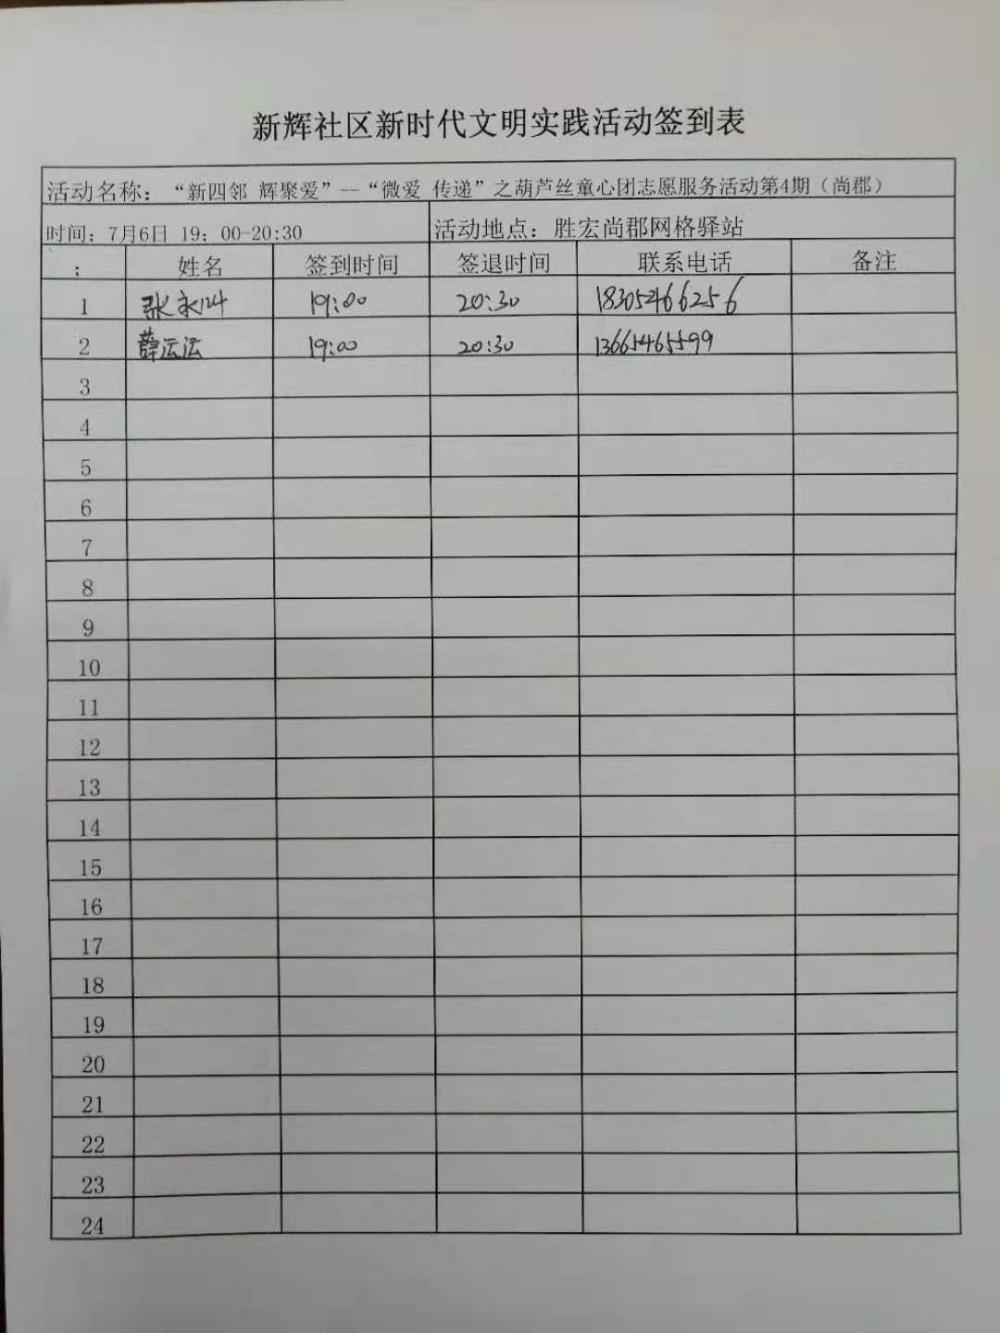 新辉社区新时代文明实践活动签到表
活动名称：“新四邻 辉聚爱”--“微爱 传递”之葫芦丝童心团志愿服务活动第4期（尚郡）
时间：7月6日 19：00-20:30 活动地点：胜宏尚郡网格驿站
； 姓名 签到时间 签退时间 联系电话 备注
1 张永 19:00 20:30 18305466256
2 薛 19:00 20:30 13665465599
3
4
5
6
7
8
9
10
11
12
13
14
15
16
17
18
19
20
21
22
23
24